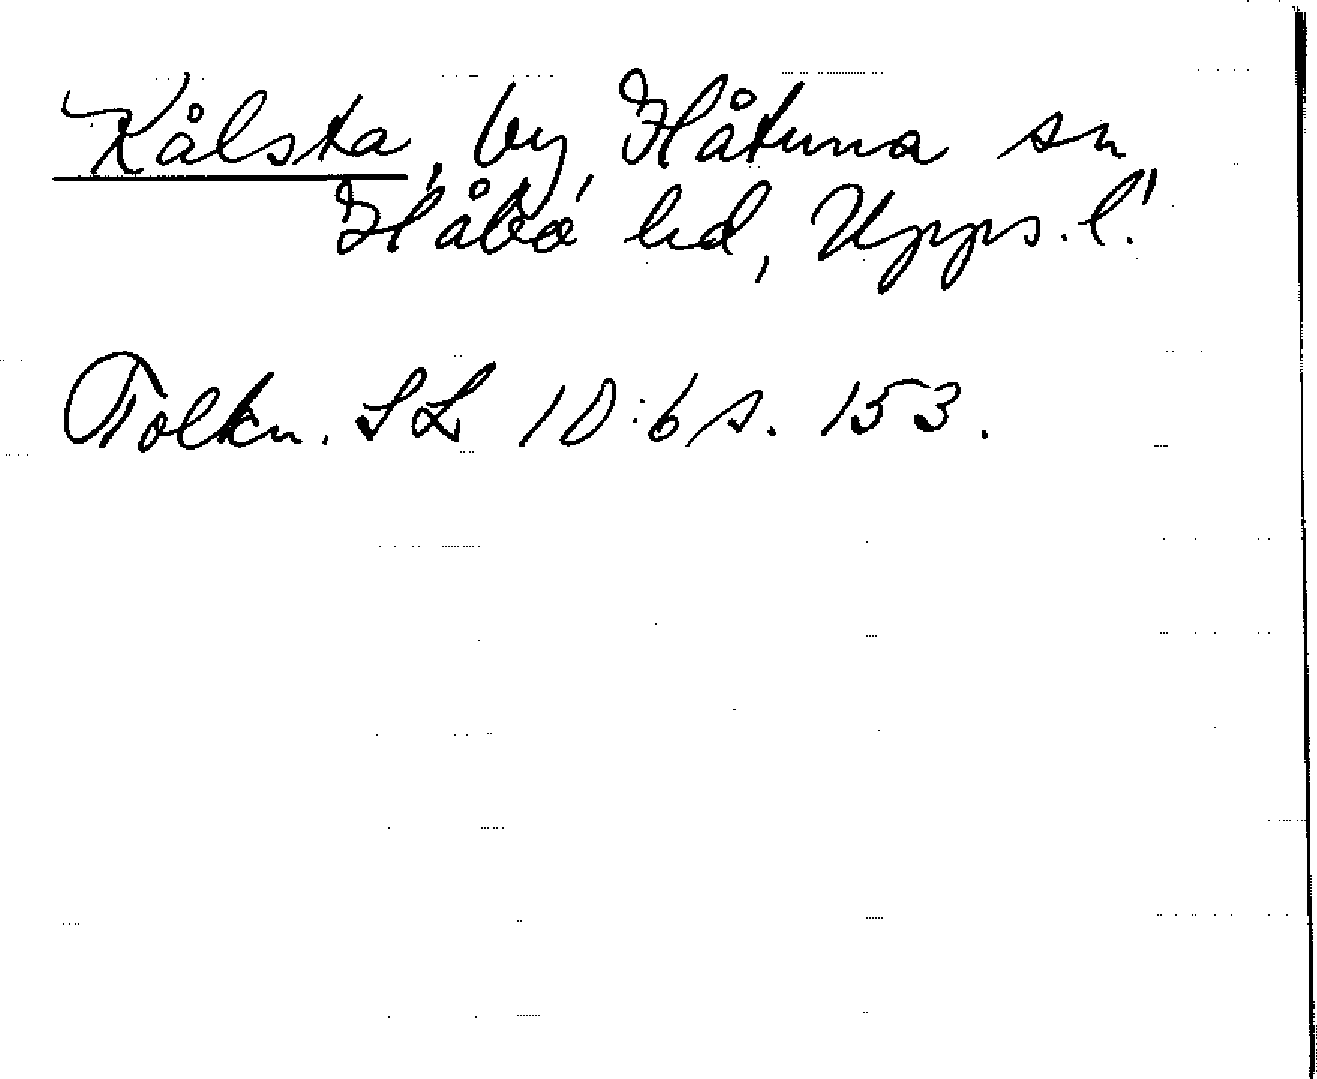 Kålsta, by, Håtuna sn,
Håbo hd, Upps. l.
Tolkn. SL 10:6 s. 153.